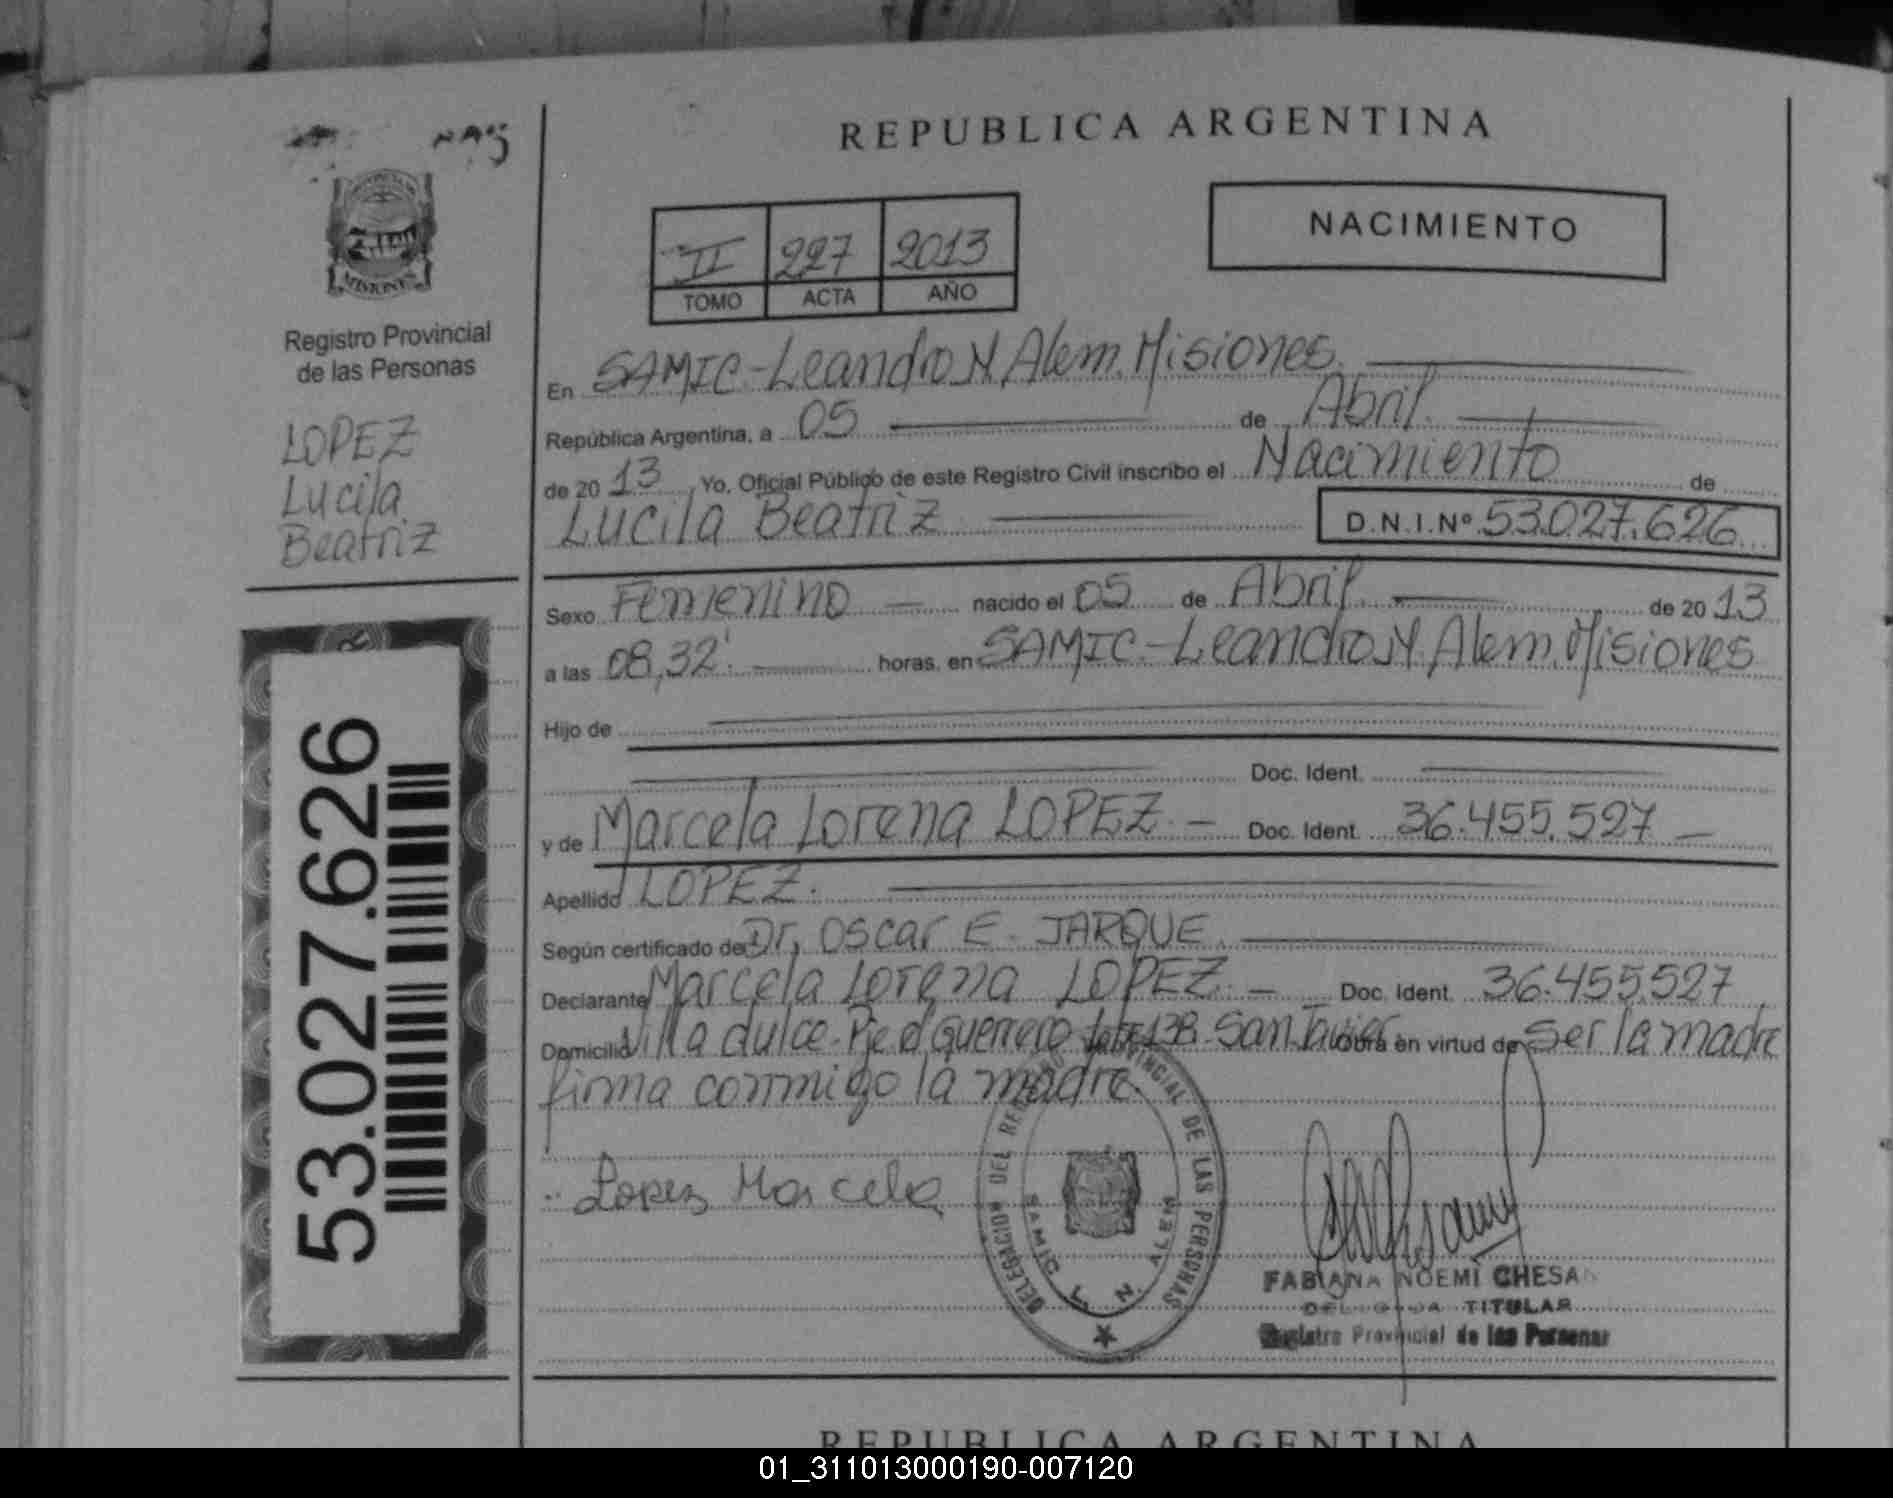 REPUBLICA ARGENTINA
MISIONES
Registro Provincial
de las Personas
LOPEZ
Lucila
Beatriz
53.027.626
II 227 2013
TOMO ACTA AÑO
NACIMIENTO
En SAMIC-Leandro N. Alem. Misiones.
República Argentina, a 05 de Abril.
de 20 13 Yo, Oficial Público de este Registro Civil inscribo el Nacimiento de
Lucila Beatriz D.N.I.Nº 53.027.626
Sexo Femenino nacido el 05 de Abril. de 20 13
a las 08,32'. horas, en SAMIC-Leandro N. Alem. Misiones
Hijo de
Doc. Ident.
y de Marcela Lorena LOPEZ. Doc. Ident. 36.455.527
Apellido LOPEZ.
Según certificado de Dr. Oscar E. JARQUE.
Declarante Marcela Lorena LOPEZ. Doc. Ident. 36.455.527
Domicilio Villa dulce. Pje el Guerrero 138-San Javier. Obra en virtud de ser la madre
firma conmigo la madre.
Lopez Marcela
DELEGACION DEL REGISTRO PROVINCIAL DE LAS PERSONAS
SAMIC L. N. ALEM
FABIANA NOEMI CHESA
DELEGADA TITULAR
Registro Provincial de las Personas
REPUBLICA ARGENTINA
01_311013000190-007120